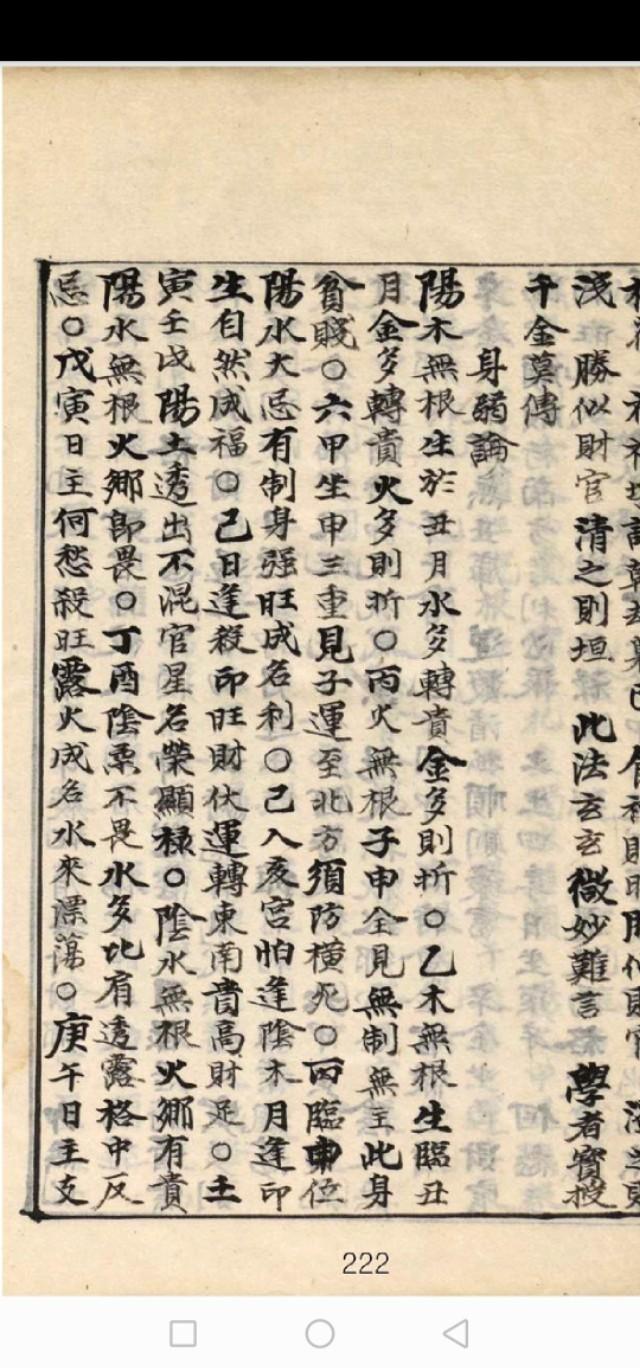 淺勝似財官清之則垣此法玄玄微妙難言學者寶授
千金莫傳
身弱論
陽木無根生於丑月水多轉貴金多則折○乙木無根生臨丑
月金多轉貴火多則折○丙火無根子申全見無制無主此身
貧賤○六甲坐申三重見子運至北方須防橫死○丙臨申位
陽水大忌有制身强旺成名利○己入亥宮怕逢陰木月逢印
生自然成福○己日逢殺印旺財伏運轉東南貴高財足○土
寅壬戌陽土透出不混官星名榮顯禄○陰水無根火鄉有貴
陽水無根火鄉即畏○丁酉陰柔不畏水多比肩透露格中反
忌○戊寅日主何愁殺旺露火成名水來漂蕩○庚午日主支
222